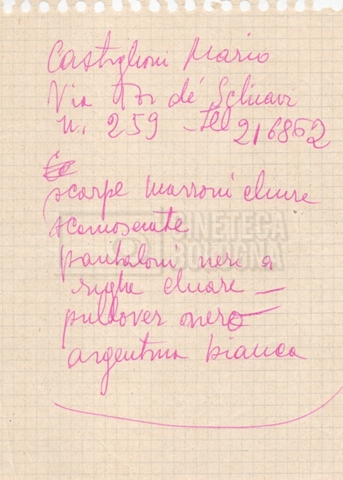 Castiglioni Mario
Via Tor de' Schiavi
n. 259 - Tel 216852
scarpe marroni chiare
scamosciate
pantaloni neri a
righe chiare -
pullover nero
argentina bianca
CINETECA
BOLOGNA